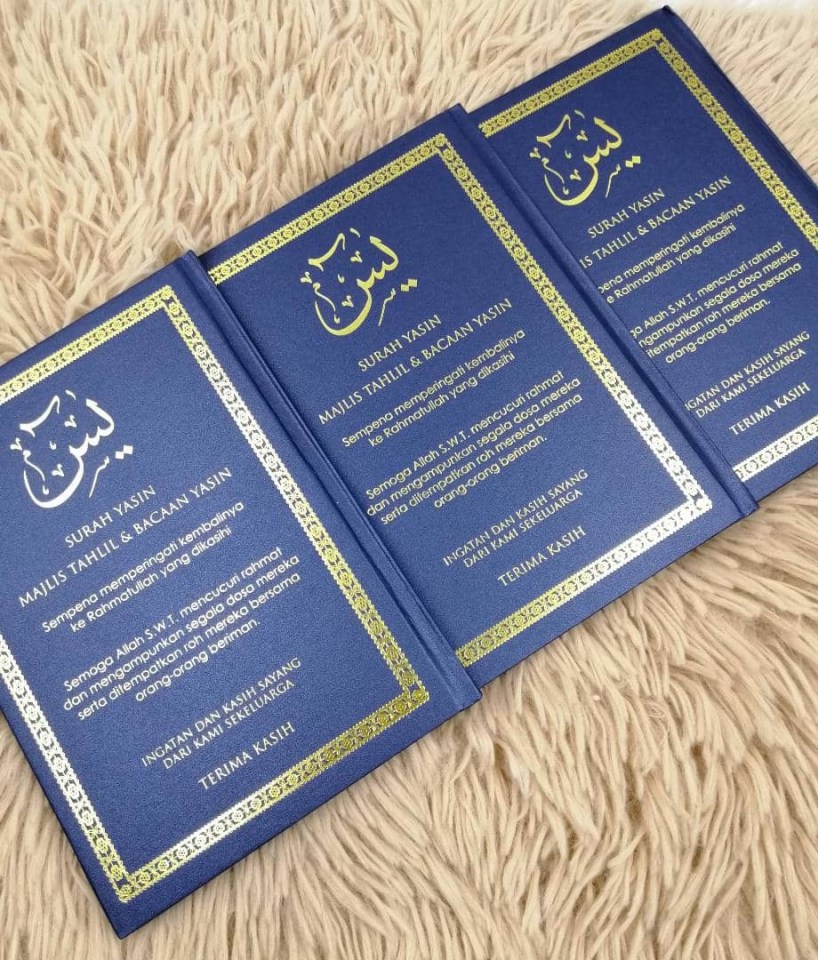 يس
SURAH YASIN
MAJLIS TAHLIL & BACAAN YASIN
Sempena memperingati kembalinya
ke Rahmatullah yang dikasihi
Semoga Allah S.W.T. mencucuri rahmat
dan mengampunkan segala dosa mereka
serta ditempatkan roh mereka bersama
orang-orang beriman.
INGATAN DAN KASIH SAYANG
DARI KAMI SEKELUARGA
TERIMA KASIH
يس
SURAH YASIN
MAJLIS TAHLIL & BACAAN YASIN
Sempena memperingati kembalinya
ke Rahmatullah yang dikasihi
Semoga Allah S.W.T. mencucuri rahmat
dan mengampunkan segala dosa mereka
serta ditempatkan roh mereka bersama
orang-orang beriman.
INGATAN DAN KASIH SAYANG
DARI KAMI SEKELUARGA
TERIMA KASIH
يس
SURAH YASIN
TAHLIL & BACAAN YASIN
memperingati kembalinya
ke Rahmatullah yang dikasihi
Allah S.W.T. mencucuri rahmat
mengampunkan segala dosa mereka
ditempatkan roh mereka bersama
orang-orang beriman.
DAN KASIH SAYANG
DARI KAMI SEKELUARGA
TERIMA KASIH